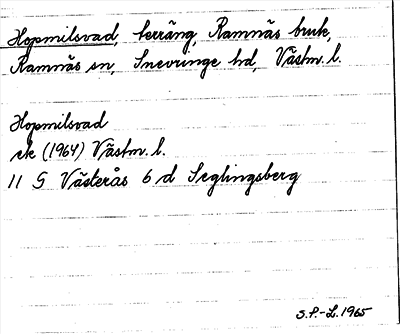 Hopmilsvad, terräng, Ramnäs bruk,
Ramnäs sn, Snevringe hd, Västm. l.
Hopmilsvad
ek (1964) Västm. l.
11 G Västerås 6 d Seglingsberg
S.P.-L. 1965